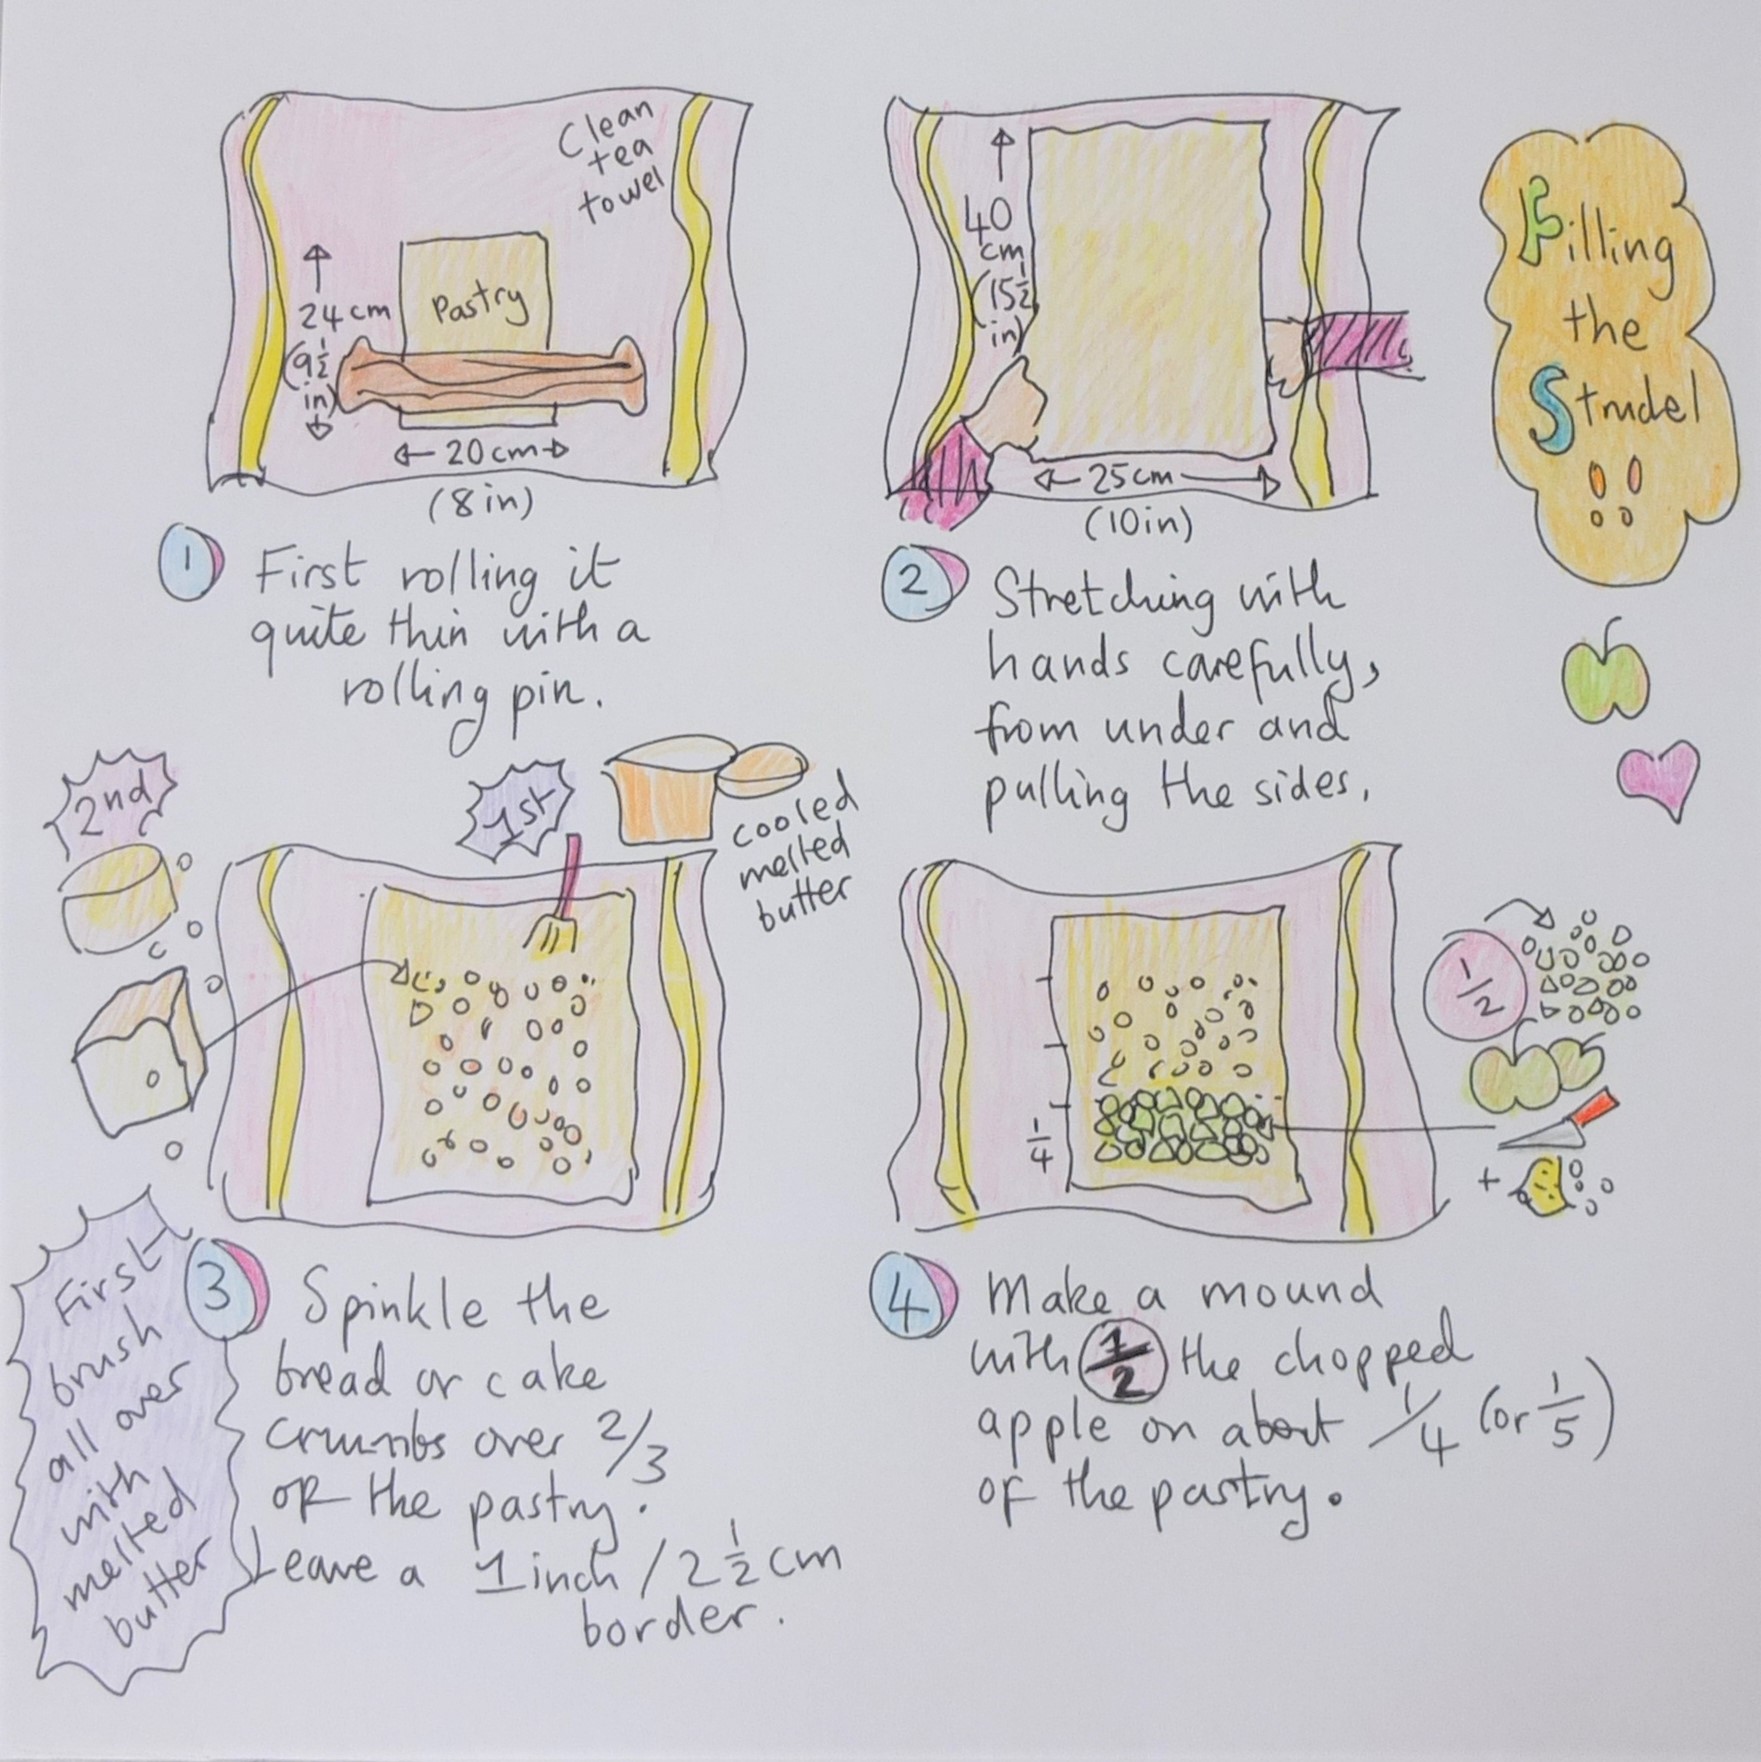 Filling
the
Strudel
Clean
tea
towel
Pastry
24 cm
(9 1/2
in)
20 cm
(8 in)
1
First rolling it
quite thin with a
rolling pin.
40
cm
(15 1/2
in)
25 cm
(10 in)
2
Stretching with
hands carefully,
from under and
pulling the sides.
2nd
1st
cooled
melted
butter
First
brush
all over
with
melted
butter
3
Spinkle the
bread or cake
crumbs over 2/3
of the pastry.
Leave a 1 inch / 2 1/2 cm
border.
1/2
1/4
+
4
Make a mound
with 1/2 the chopped
apple on about 1/4 (or 1/5)
of the pastry.